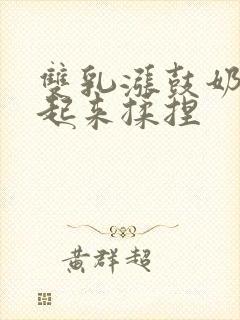 雙乳漲鼓奶
起来揉捏
黄群超